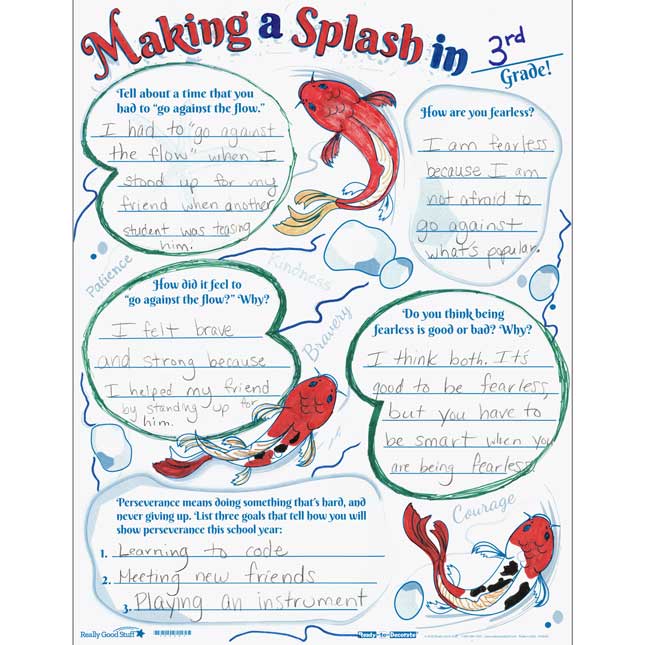 Making a Splash in 3rd
Grade!
Tell about a time that you
had to "go against the flow."
I had to "go against
the flow" when I
stood up for my
friend when another
student was teasing
him.
How are you fearless?
I am fearless
because I am
not afraid to
go against
what's popular.
Patience
Kindness
Bravery
How did it feel to
"go against the flow?" Why?
I felt brave
and strong because
I helped my friend
by standing up for
him.
Do you think being
fearless is good or bad? Why?
I think both. It's
good to be fearless,
but you have to
be smart when you
are being fearless
Courage
Perseverance means doing something that's hard, and
never giving up. List three goals that tell how you will
show perseverance this school year:
1. Learning to code
2. Meeting new friends
3. Playing an instrument
Really Good Stuff
Ready-to-Decorate